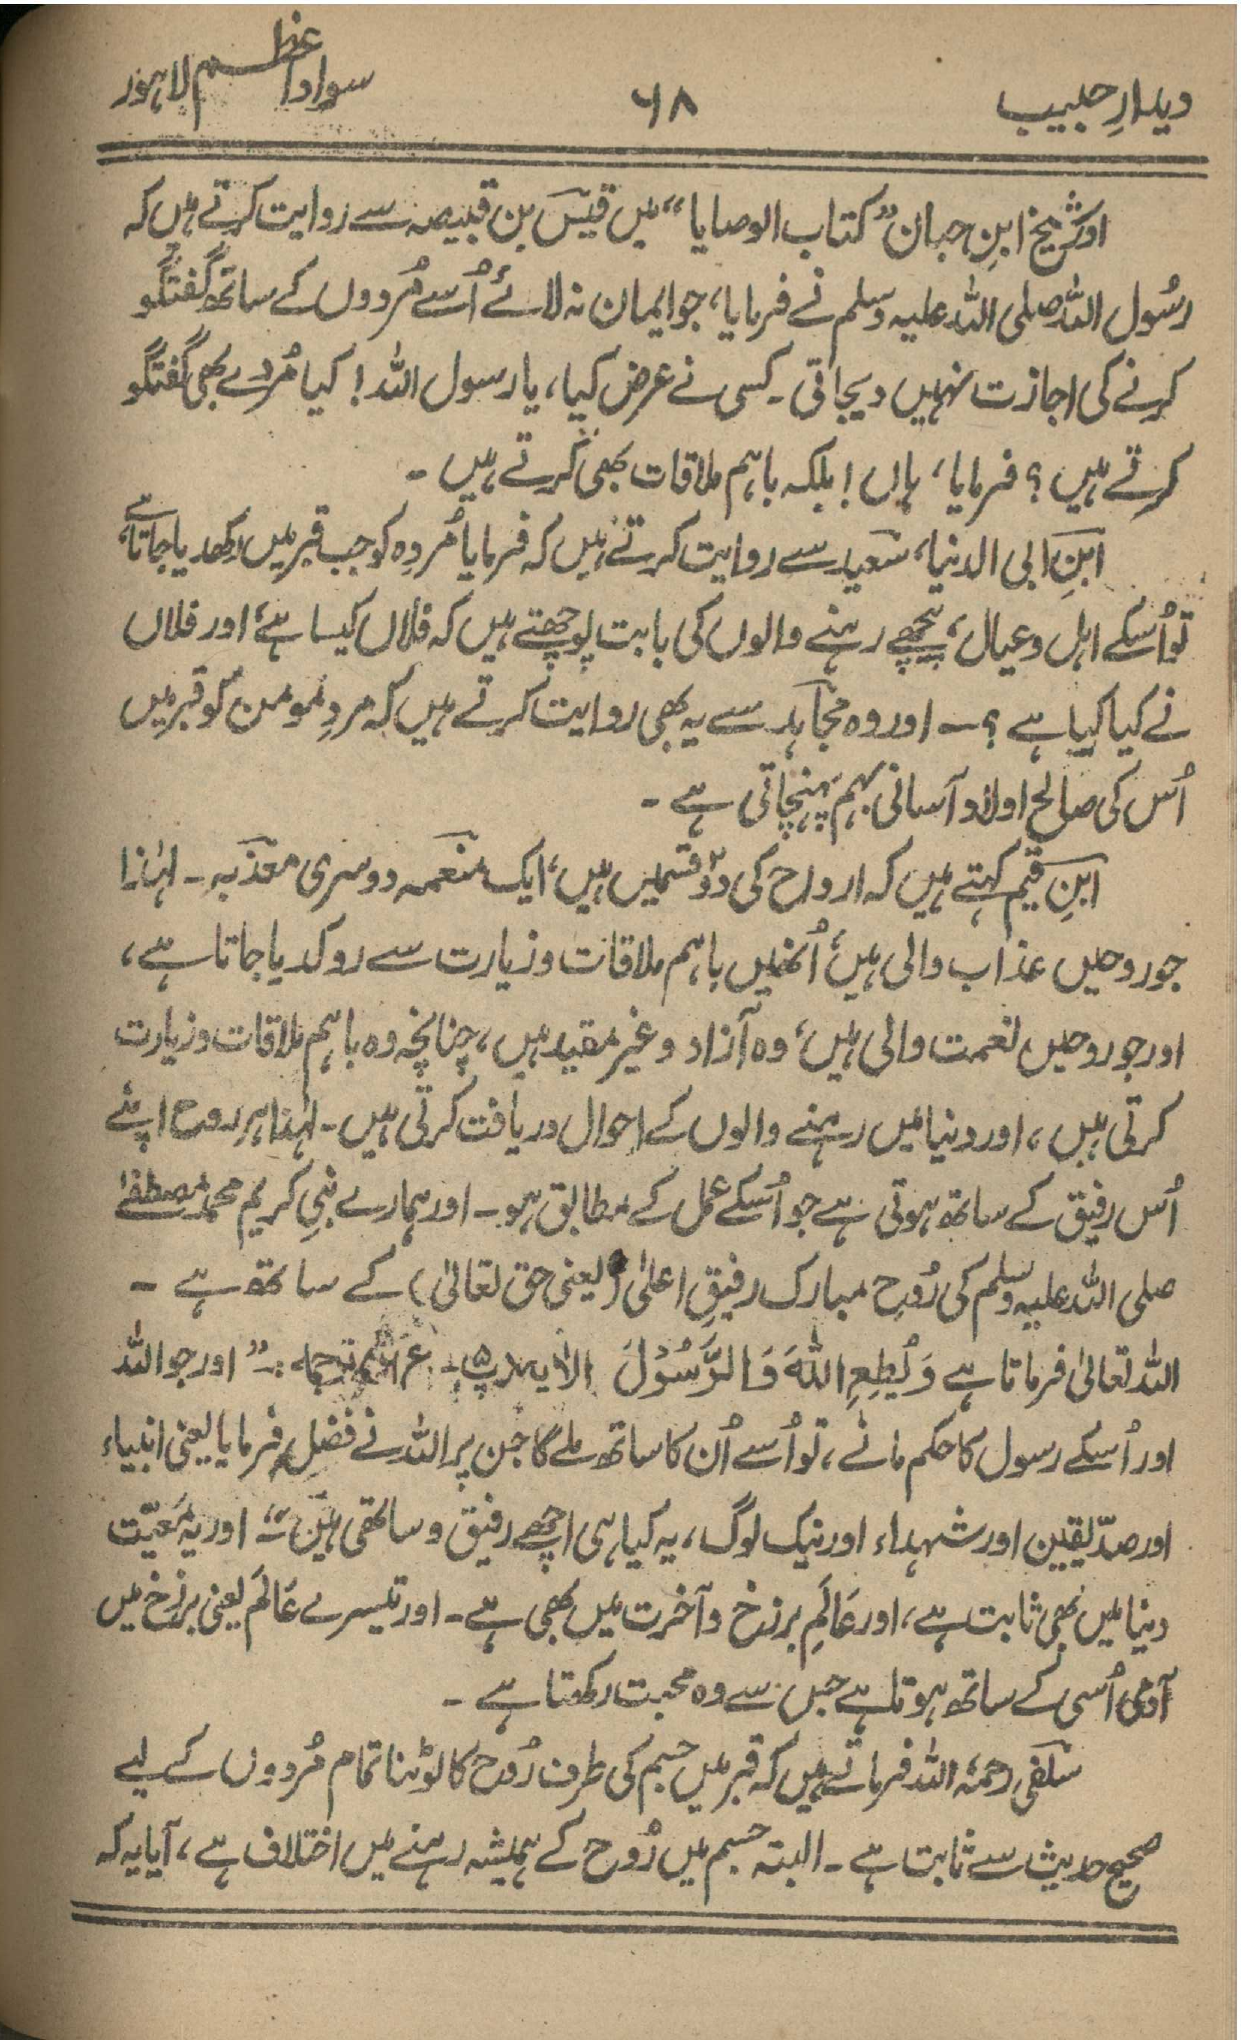 دیدارِ حبیب ۶۸ سوادِ اعظم لاہور
اور شیخ ابنِ حبان ”کتاب الوصایا“ میں قیس بن قبیصہ سے روایت کرتے ہیں کہ
رسُول اللہ صلی اللہ علیہ وسلم نے فرمایا، جو ایمان نہ لائے اُسے مُردوں کے ساتھ گفتگو
کرنے کی اجازت نہیں دیجاتی۔ کسی نے عرض کیا، یا رسول اللہ! کیا مُردے بھی گفتگو
کرتے ہیں؟ فرمایا، ہاں! بلکہ باہم ملاقات بھی کرتے ہیں۔
ابنِ ابی الدنیا، سعید سے روایت کرتے ہیں کہ فرمایا مُردہ کو جب قبر میں رکھدیا جاتا ہے
تو اُسکے اہل وعیال، پیچھے رہنے والوں کی بابت پوچھتے ہیں کہ فلاں کیسا ہے، اور فلاں
نے کیا کیا ہے؟ ۔ اور وہ مجاہد سے یہ بھی روایت کرتے ہیں کہ مردِ مومن کو قبر میں
اُس کی صالح اولاد آسانی بہم پہنچاتی ہے۔
ابنِ قیم کہتے ہیں کہ ارواح کی دو۲ قسمیں ہیں، ایک منعمہ دوسری معذبہ۔ لہٰذا
جو روحیں عذاب والی ہیں، اُنھیں باہم ملاقات وزیارت سے روکدیا جاتا ہے،
اور جو روحیں نعمت والی ہیں، وہ آزاد وغیر مقید ہیں، چنانچہ وہ باہم ملاقات وزیارت
کرتی ہیں، اور دنیا میں رہنے والوں کے احوال دریافت کرتی ہیں۔ لہٰذا ہر روح اپنے
اُس رفیق کے ساتھ ہوتی ہے جو اُسکے عمل کے مطابق ہو۔ اور ہمارے نبی کریم محمد مصطفےٰ
صلی اللہ علیہ وسلم کی رُوحِ مبارک رفیقِ اعلیٰ (یعنی حق تعالیٰ) کے ساتھ ہے۔
اللہ تعالیٰ فرماتا ہے وَیُطِعِ اللّٰہَ وَالرَّسُوْلَ الاٰیہ ترجمہ:۔ ”اور جو اللہ
اور اُسکے رسول کا حکم مانے، تو اُسے اُن کا ساتھ ملے گا جن پر اللہ نے فضل فرمایا یعنی انبیاء
اور صدّیقین اور شہداء اور نیک لوگ، یہ کیا ہی اچھے رفیق و ساتھی ہیں“ اور یہ مَعِیّت
دنیا میں بھی ثابت ہے، اور عَالَمِ برزخ و آخرت میں بھی ہے۔ اور تیسرے عَالَم یعنی برزخ میں
آدمی اُسی کے ساتھ ہوتا ہے جس سے وہ محبت رکھتا ہے۔
سلفی رحمۃ اللہ فرماتے ہیں کہ قبر میں جسم کی طرف رُوح کا لوٹنا تمام مُردوں کے لیے
صحیح حدیث سے ثابت ہے۔ البتہ جسم میں رُوح کے ہمیشہ رہنے میں اختلاف ہے، آیا یہ کہ